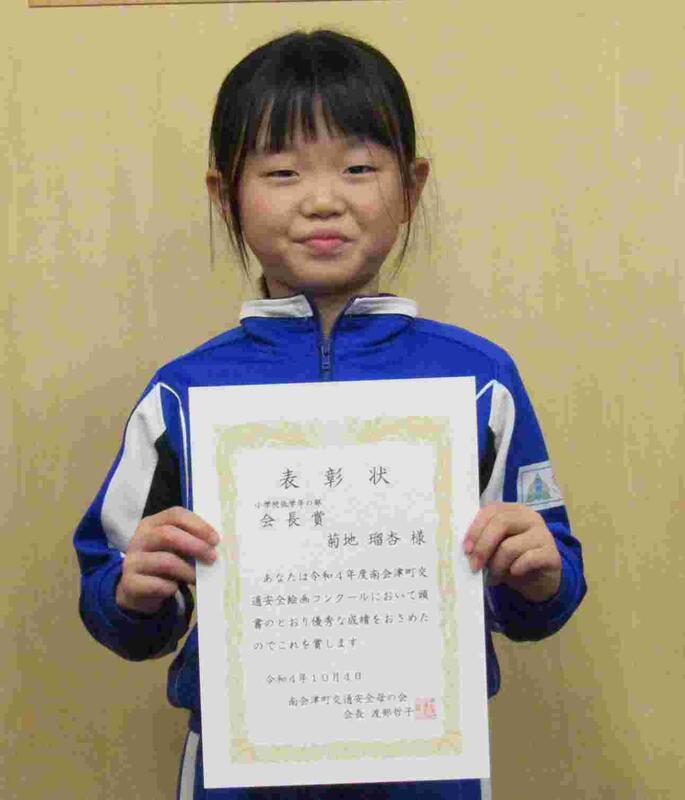 表彰状
小学校低学年の部
会長賞
菊地 瑠杏 様
あなたは令和４年度南会津町交
通安全絵画コンクールにおいて頭
書のとおり優秀な成績をおさめた
のでこれを賞します
令和４年１０月４日
南会津町交通安全母の会
会長 渡部哲子